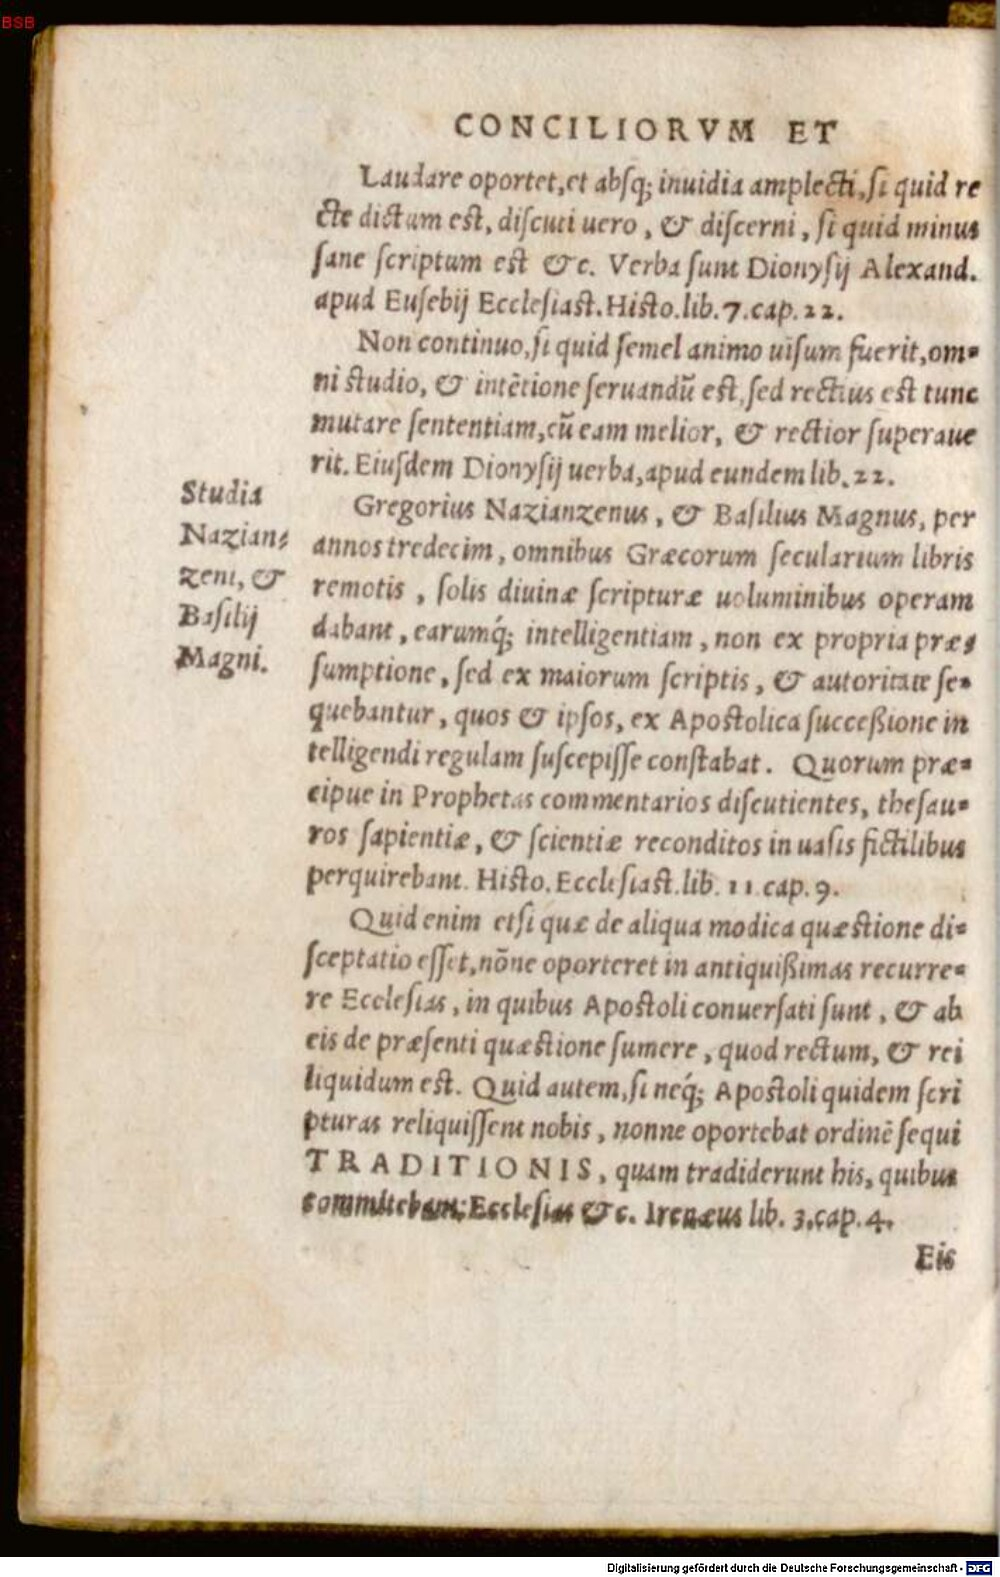 BSB
CONCILIORVM ET
Laudare oportet, et absq; inuidia amplecti, si quid re
cte dictum est, discuti uero, & discerni, si quid minus
sane scriptum est &c. Verba sunt Dionysij Alexand.
apud Eusebij Ecclesiast. Histo. lib. 7. cap. 22.
Non continuo, si quid semel animo uisum fuerit, om=
ni studio, & intētione seruandū est, sed rectius est tunc
mutare sententiam, cū eam melior, & rectior superaue
rit. Eiusdem Dionysij uerba, apud eundem lib. 22.
Studia
Nazian=
zeni, &
Basilij
Magni.
Gregorius Nazianzenus, & Basilius Magnus, per
annos tredecim, omnibus Græcorum secularium libris
remotis, solis diuinæ scripturæ uoluminibus operam
dabant, earumq́; intelligentiam, non ex propria præ=
sumptione, sed ex maiorum scriptis, & autoritate se=
quebantur, quos & ipsos, ex Apostolica succeßione in
telligendi regulam suscepisse constabat. Quorum præ=
cipue in Prophetas commentarios discutientes, thesau=
ros sapientiæ, & scientiæ reconditos in uasis fictilibus
perquirebant. Histo. Ecclesiast. lib. 11. cap. 9.
Quid enim etsi quæ de aliqua modica quæstione di=
sceptatio esset, nōne oporteret in antiquißimas recurre=
re Ecclesias, in quibus Apostoli conuersati sunt, & ab
eis de præsenti quæstione sumere, quod rectum, & rei
liquidum est. Quid autem, si neq́; Apostoli quidem scri
pturas reliquissent nobis, nonne oportebat ordinē sequi
TRADITIONIS, quam tradiderunt his, quibus
committebant; Ecclesias &c. Irenæus lib. 3. cap. 4.
Eis
Digitalisierung gefördert durch die Deutsche Forschungsgemeinschaft - DFG